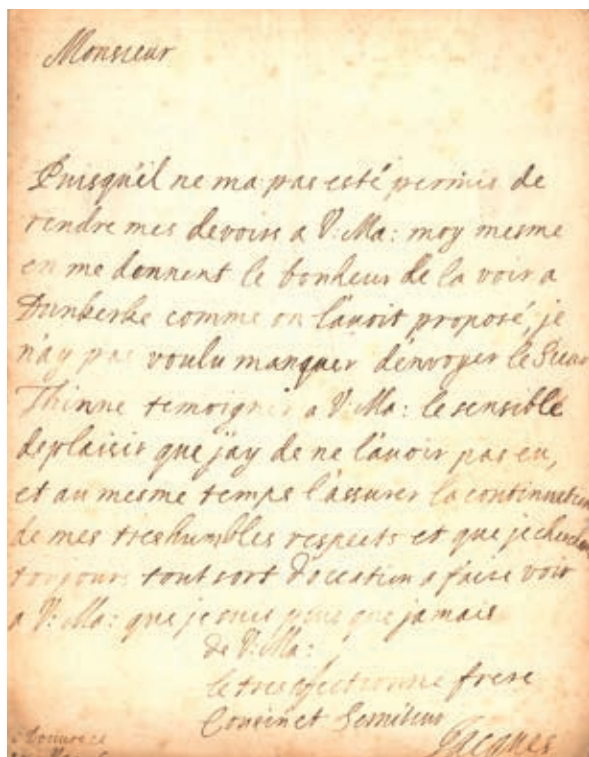 Monsieur
Puisqu'il ne ma pas esté permis de
rendre mes devoirs a V: Ma: moy mesme
en me donnent le bonheur de la voir a
Dunkerke comme on l'auoit proposé, je
n'ay pas voulu manquer d'envoyer le Sieur
Thinne temoigner a V: Ma: le sensible
deplaisir que j'ay de ne l'auoir pas eu,
et au mesme temps l'assurer la continuation
de mes treshumbles respects et que je
toujours tout sort d'occation a faire voir
a V: Ma: que je suis plus que jamais
de V: Ma:
le tres afectionne frere
Cousin et Serviteur
Jacques